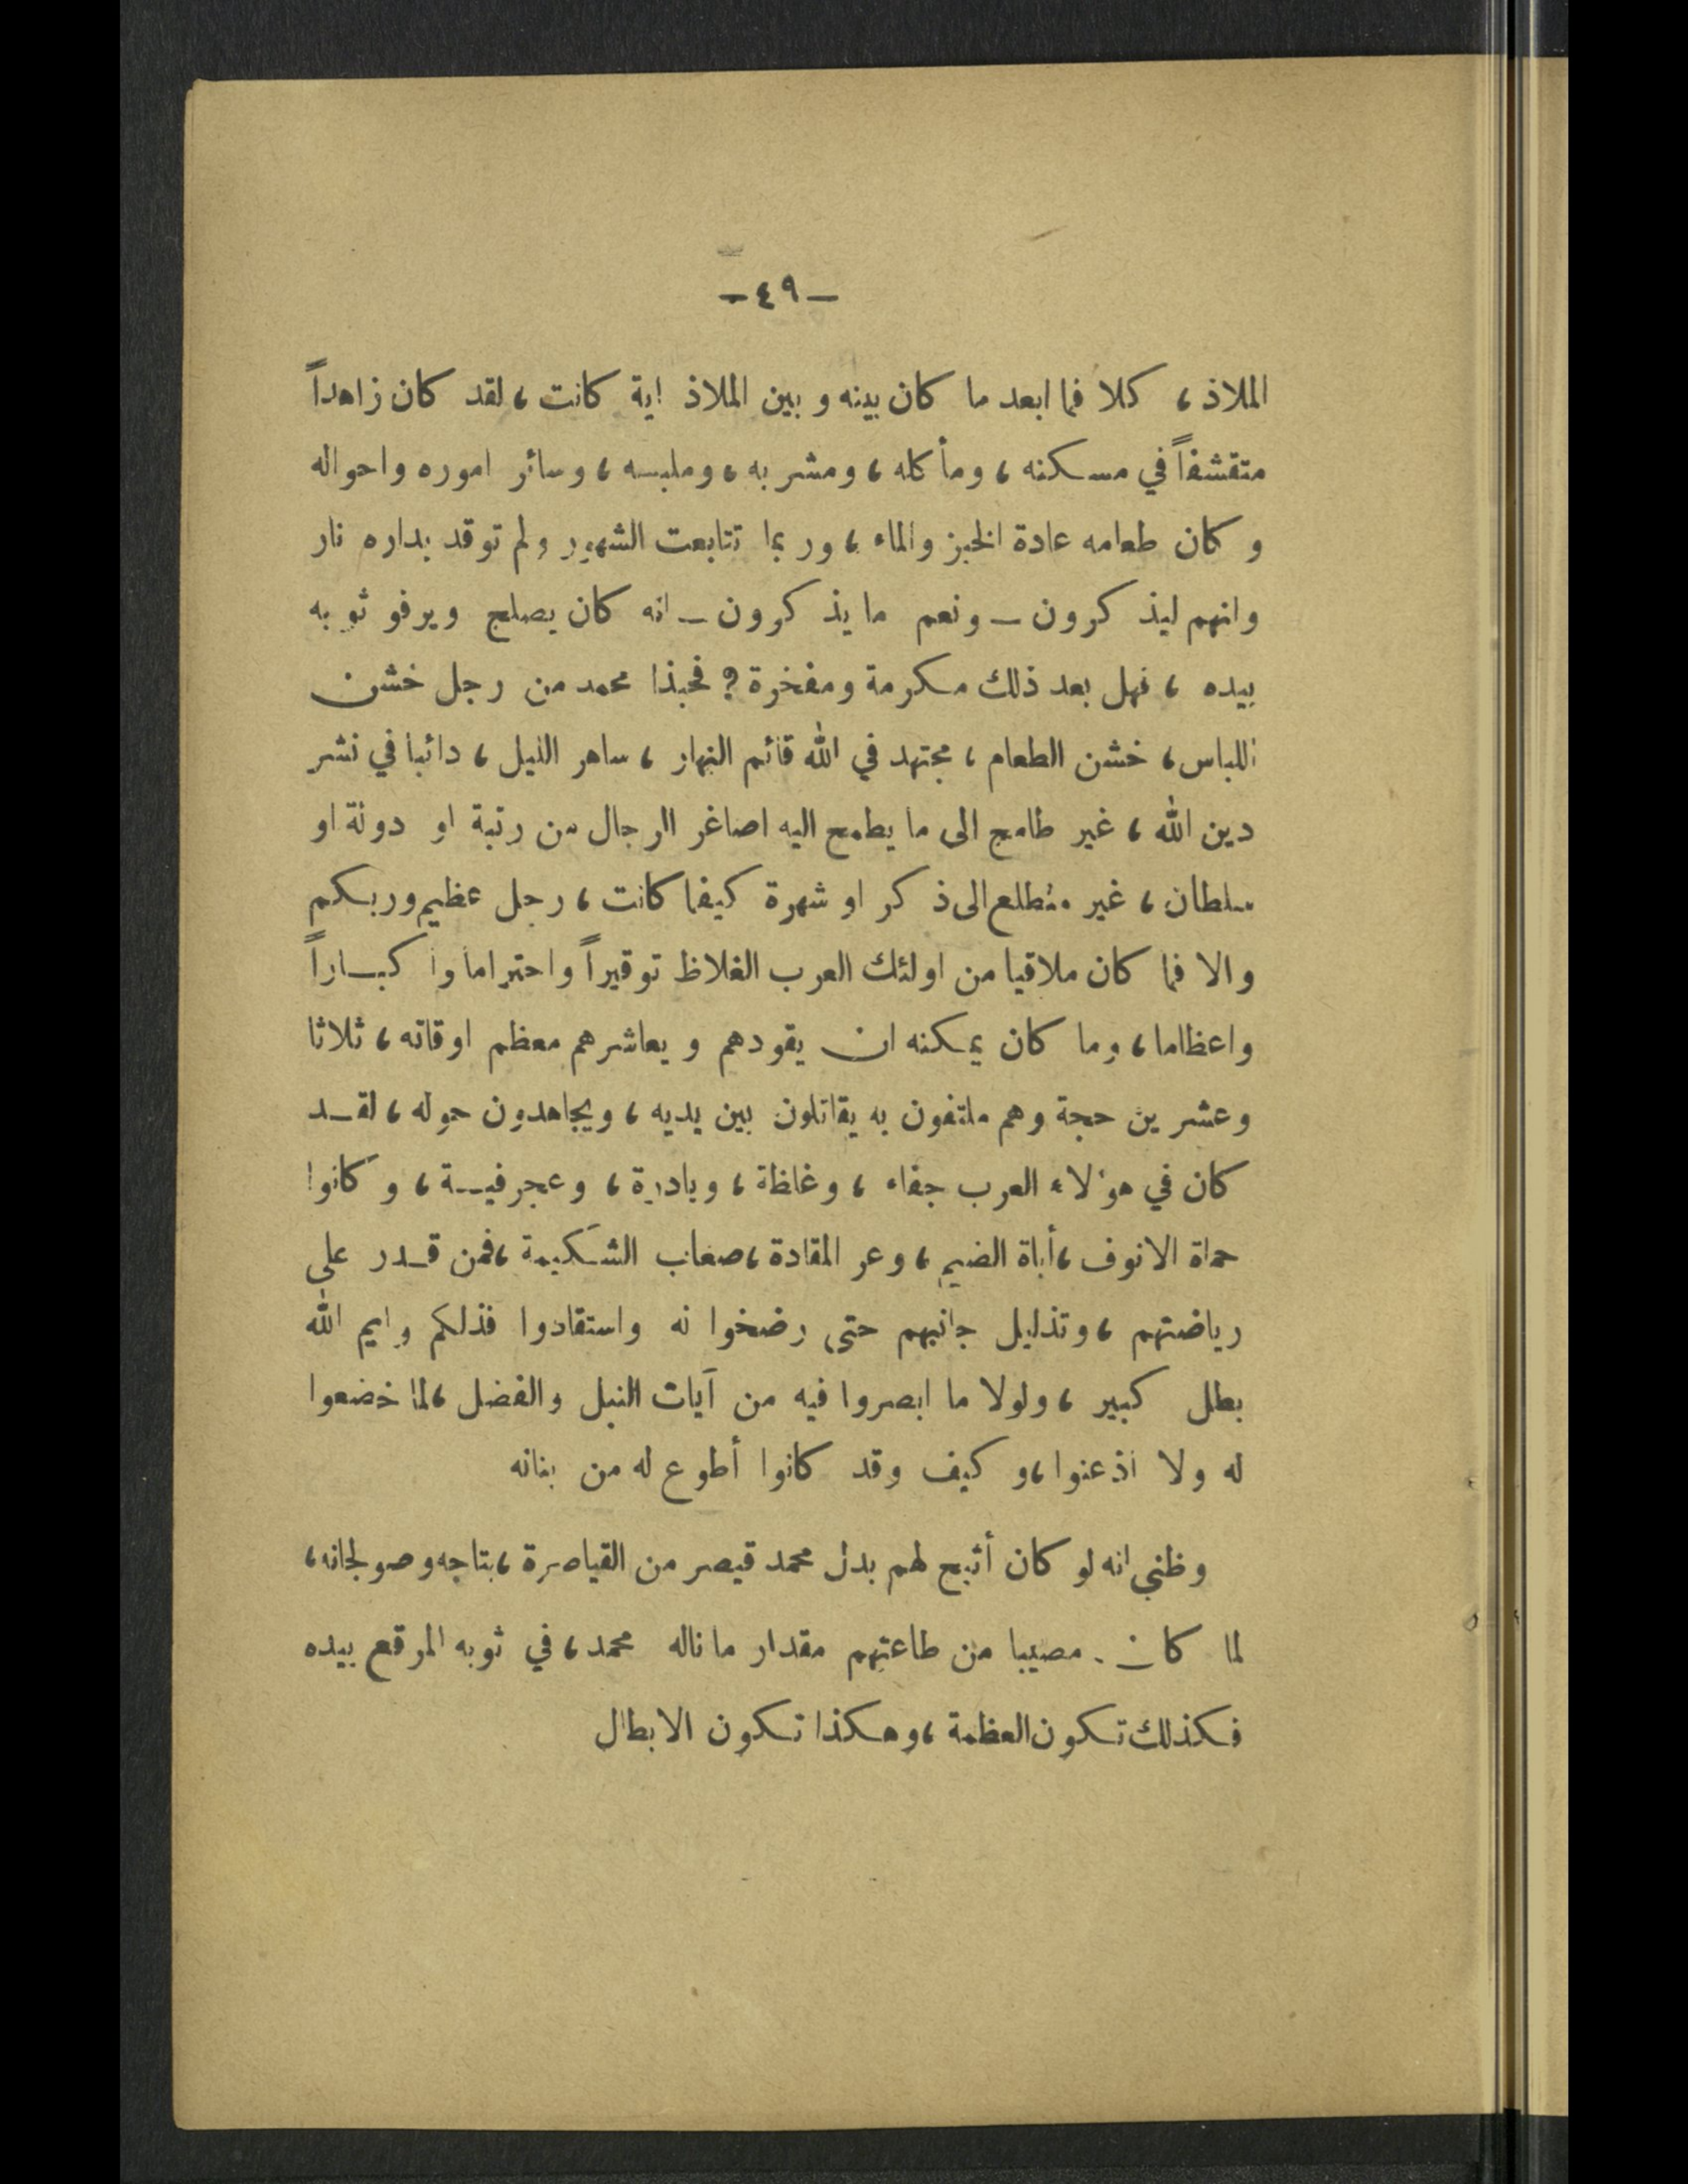 —٤٩—
الملاذ، كلا فما ابعد ما كان بينه وبين الملاذ اية كانت، لقد كان زاهداً
متقشفاً في مسكنه، ومأكله، ومشربه، وملبسه، وسائر اموره واحواله
وكان طعامه عادة الخبز والماء، وربما تتابعت الشهور ولم توقد بداره نار
وانهم ليذكرون — ونعم ما يذكرون — انه كان يصلح ويرفو ثوبه
بيده، فهل بعد ذلك مكرمة ومفخرة؟ فحبذا محمد من رجل خشن
اللباس، خشن الطعام، مجتهد في الله قائم النهار، ساهر الليل، دائبا في نشر
دين الله، غير طامح الى ما يطمح اليه اصاغر الرجال من رتبة او دولة او
سلطان، غير متطلع الى ذكر او شهرة كيفما كانت، رجل عظيم وربكم
والا فما كان ملاقيا من اولئك العرب الغلاظ توقيراً واحتراما واكباراً
واعظاما، وما كان يمكنه ان يقودهم ويعاشرهم معظم اوقاته، ثلاثا
وعشرين حجة وهم ملتفون به يقاتلون بين يديه، ويجاهدون حوله، لقد
كان في هؤلاء العرب جفاء، وغلظة، وبادرة، وعجرفية، وكانوا
حماة الانوف، أباة الضيم، وعر المقادة، صعاب الشكيمة، فمن قدر على
رياضتهم، وتذليل جانبهم حتى رضخوا له واستقادوا فذلكم وايم الله
بطل كبير، ولولا ما ابصروا فيه من آيات النبل والفضل، لما خضعوا
له ولا اذعنوا، وكيف وقد كانوا أطوع له من بنانه
وظني انه لو كان أتيح لهم بدل محمد قيصر من القياصرة، بتاجه وصولجانه،
لما كان مصيبا من طاعتهم مقدار ما ناله محمد، في ثوبه المرقع بيده
فكذلك تكون العظمة، وهكذا تكون الابطال